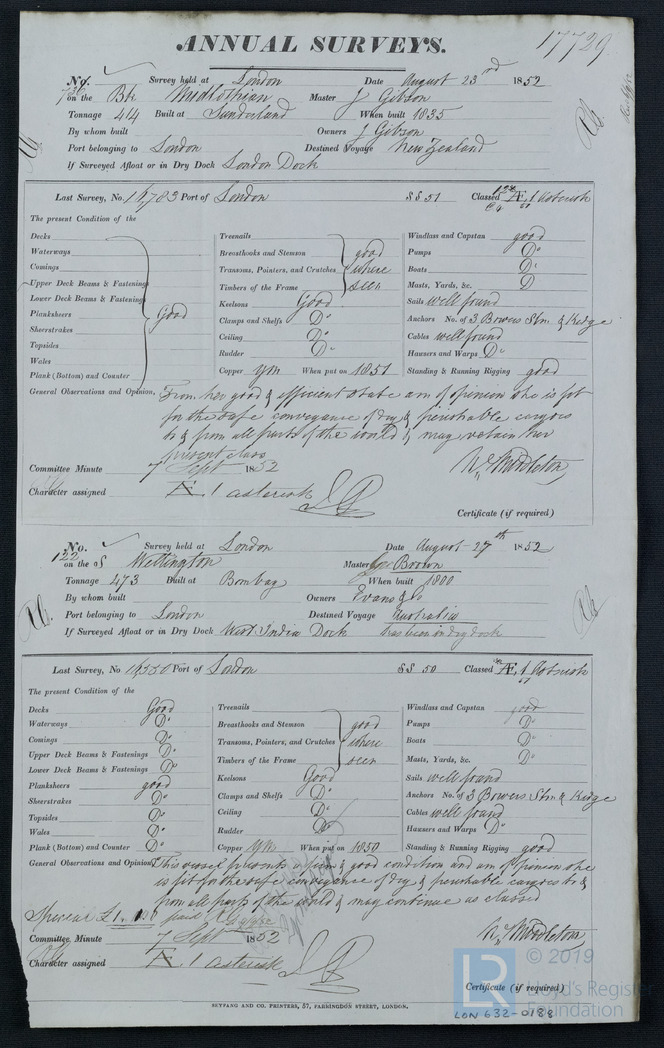 ANNUAL SURVEYS. 17729
No. Survey held at London Date August 23rd 1852
on the Bk Midlothian Master J Gibson
Tonnage 414 Built at Sunderland When built 1835
By whom built Owners J Gibson
Port belonging to London Destined Voyage New Zealand
If Surveyed Afloat or in Dry Dock London Dock
Last Survey, No. Port of London SS 51 Classed Æ 1 Asterisk
The present Condition of the
Decks
Waterways
Comings
Upper Deck Beams & Fastenings
Lower Deck Beams & Fastenings
Planksheers Good
Sheerstrakes
Topsides
Wales
Plank (Bottom) and Counter
Treenails
Breasthooks and Stemson good
Transoms, Pointers, and Crutches where
Timbers of the Frame seen
Keelsons Good
Clamps and Shelfs Do
Ceiling Do
Rudder Do
Copper YM When put on 1851
Windlass and Capstan good
Pumps Do
Boats Do
Masts, Yards, &c. Do
Sails well found
Anchors No. of 3 Bowers Stm & Kedge
Cables well found
Hawsers and Warps Do
Standing & Running Rigging good
General Observations and Opinion, From her good & efficient state am of opinion she is fit
for the safe conveyance of dry & perishable cargoes
to & from all parts of the world & may retain her
present class
Committee Minute 7 Sept 1852 Wm Middleton
Character assigned Æ 1 asterisk
Certificate (if required)
No. Survey held at London Date August 27th 1852
122 on the S Wellington Master Brown
Tonnage 473 Built at Bombay When built 1800
By whom built Owners Evans & Co
Port belonging to London Destined Voyage Australia
If Surveyed Afloat or in Dry Dock West India Dock has been in dry dock
Last Survey, No Port of London SS 50 Classed Æ 1 Asterisk
The present Condition of the
Decks Good
Waterways Do
Comings Do
Upper Deck Beams & Fastenings Do
Lower Deck Beams & Fastenings Do
Planksheers good
Sheerstrakes Do
Topsides Do
Wales Do
Plank (Bottom) and Counter Do
Treenails
Breasthooks and Stemson good
Transoms, Pointers, and Crutches where
Timbers of the Frame seen
Keelsons Good
Clamps and Shelfs Do
Ceiling Do
Rudder Do
Copper YM When put on 1850
Windlass and Capstan good
Pumps Do
Boats Do
Masts, Yards, &c. Do
Sails well found
Anchors No. of 3 Bowers Stm & Kedge
Cables well found
Hawsers and Warps Do
Standing & Running Rigging good
General Observations and Opinion, This vessel presents a firm & good condition and am of opinion she
is fit for the safe conveyance of dry & perishable cargoes to &
from all parts of the world & may continue as classed
Special £1.1.0 paid
Committee Minute 7 Sept 1852 Wm Middleton
Character assigned Æ 1 asterisk
Certificate (if required)
SEYFANG AND CO. PRINTERS, 57, FARRINGDON STREET, LONDON.
LR © 2019
Lloyd's Register
Foundation
LON 632-0188